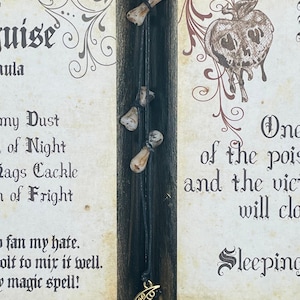 guise
ula
my Dust
of Night
Hags Cackle
of Fright
to fan my hate.
bolt to mix it well.
magic spell!
One
of the pois
and the vict
will clo
Sleeping